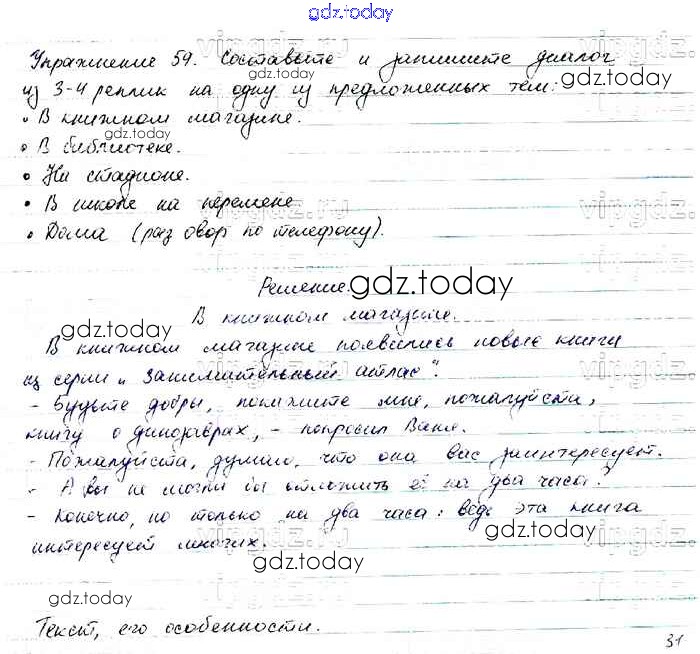 gdz.today
Упражнение 59. Составьте и запишите диалог
из 3-4 реплик на одну из предложенных тем:
• В книжном магазине.
• В библиотеке.
• На стадионе.
• В школе на перемене
• Дома (разговор по телефону).
Решение.
В книжном магазине.
В книжном магазине появились новые книги
из серии „Занимательный атлас".
- Будьте добры, покажите мне, пожалуйста,
книгу о динозаврах, - попросил Ваня.
- Пожалуйста, думаю, что она вас заинтересует.
- А вы не могли бы отложить её на два часа?
- Конечно, но только на два часа: ведь эта книга
интересует многих.
Текст, его особенности.
31
gdz.today
gdz.today
gdz.today
gdz.today
gdz.today
gdz.today
gdz.today
gdz.today
vipgdz.ru